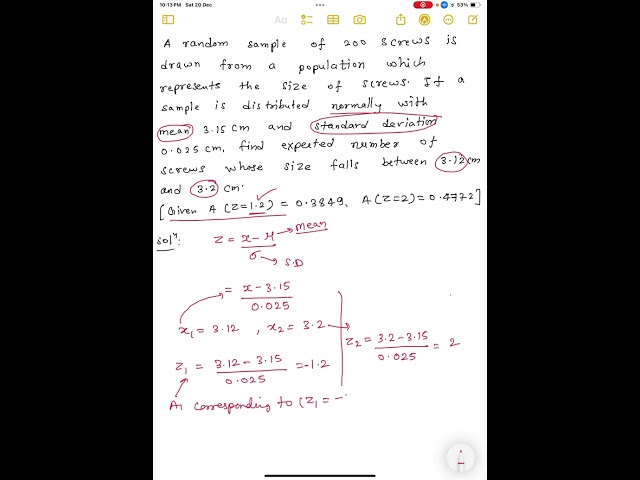 10:13 PM Sat 20 Dec
53%
Aa
A random sample of 200 screws is
drawn from a population which
represents the size of screws. If a
sample is distributed normally with
mean 3.15 cm and standard deviation
0.025 cm, find expected number of
screws whose size falls between 3.12 cm
and 3.2 cm.
[Given A(Z=1.2) = 0.3849, A(Z=2)=0.4772]
solⁿ: Z = x-μ/σ → mean
→ S.D
= x-3.15/0.025
x₁ = 3.12 , x₂ = 3.2
Z₁ = 3.12-3.15/0.025 = -1.2
Z₂ = 3.2-3.15/0.025 = 2
A₁ corresponding to (Z₁ = -